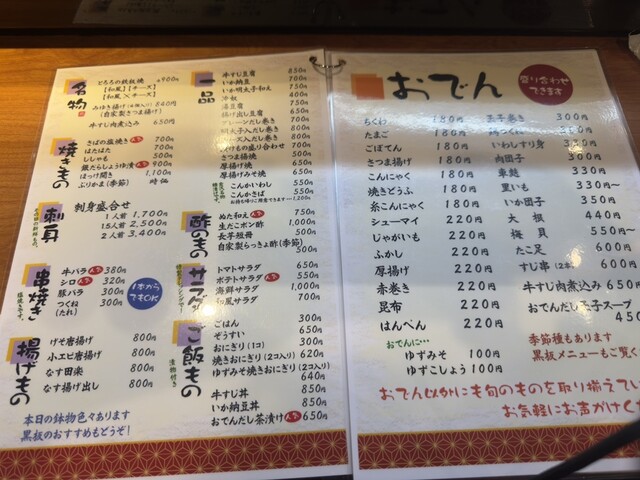 名物
とろろの鉄板焼 ¥900円
【和風】【チーズ】
【和風×チーズ】
みゆき揚げ 860円
(自家製さつま揚げ)
牛すじ肉煮込み 650円
焼きもの
さばの塩焼き 700円
はたはた 700円
ししゃも 500円
銀だらしょうゆ漬 900円
ほっけ開き 1,100円
ぶりかま(季節) 時価
刺身
刺身盛合せ
1人前 1,700円
1.5人前 2,500円
2人前 3,400円
串焼き
塩焼きです。
牛バラ 380円
シロ 320円
豚バラ 300円
つくね 300円
(たれ)
1本から
でもOK
揚げもの
げそ唐揚げ 800円
小エビ唐揚げ 800円
なす田楽 800円
なす揚げ出し 800円
本日の鉢物色々あります
黒板のおすすめもどうぞ!
一品
牛すじ豆腐 850円
いか納豆 700円
いか明太子和え 750円
冷奴 400円
湯豆腐
揚げ出し豆腐
プレーンだし巻き 700円
明太子入だし巻き
ーズ入だし巻き
つけもの盛り合わせ
さつま揚焼
厚揚げ焼
厚揚げねぎ焼 650円
こんかいわし 550円
こんかさば 550円
酢のもの
ぬた和え 650円
生だこポン酢
長芋短冊 500円
自家製らっきょ酢(季節) 500円
サラダ
トマトサラダ 450円
ポテトサラダ 550円
海鮮サラダ 1,000円
和風サラダ 700円
ご飯もの
漬物付き
ごはん 300円
ぞうすい 650円
おにぎり(1コ) 300円
焼きおにぎり(2コ入り) 620円
ゆずみそ焼きおにぎり(2コ入り)
640円
牛すじ丼 850円
いか納豆丼 850円
おでんだし茶漬け 650円
おでん
盛り合わせ
できます
ちくわ 180円
たまご 180円
ごぼてん 180円
さつま揚げ 180円
こんにゃく 180円
焼きどうふ 180円
糸こんにゃく 180円
シューマイ 220円
じゃがいも 220円
ふかし 220円
厚揚げ 220円
赤巻き 220円
昆布 220円
はんぺん 220円
おでんに…
ゆずみそ 100円
ゆずこしょう 100円
玉子巻き 300円
鶏つくね
いわしすり身 330円
肉団子 330円
車麩 330円
里いも 330円～
いか団子 350円
大根 440円
梅貝 550円～
たこ足 600円～
すじ串(2本) 600円
牛すじ肉煮込み 650円
おでんだし玉子スープ
450
季節種もあります
黒板メニューもご覧く
おでん以外にも旬のものを取り揃えてい
お気軽にお声がけくだ